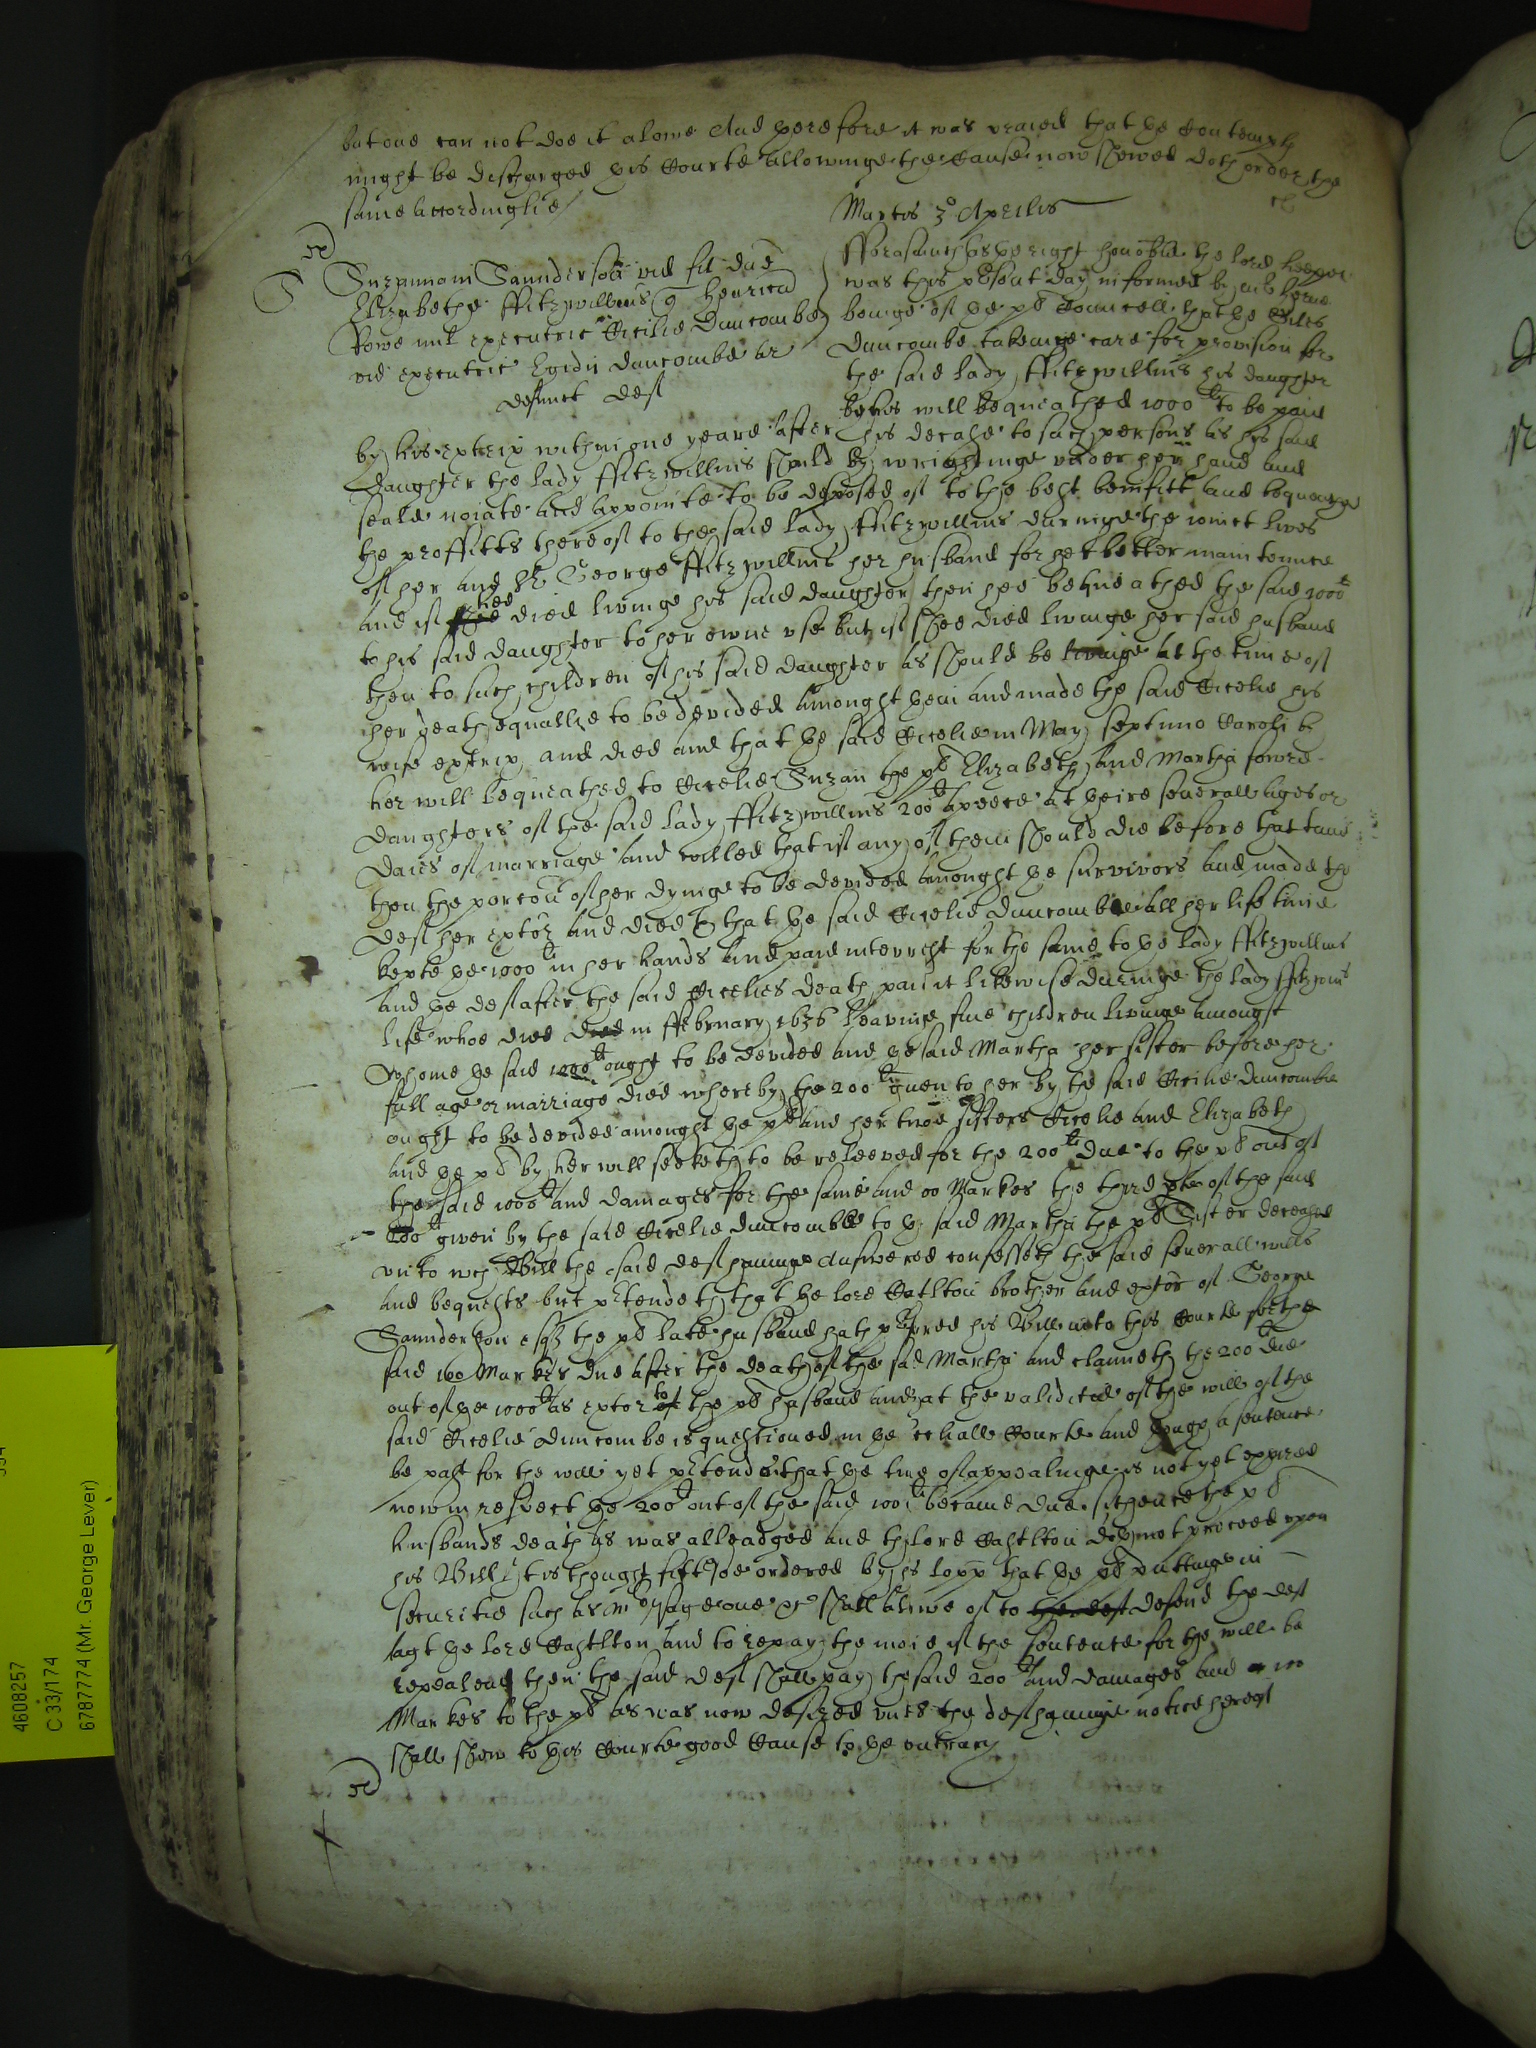 but one can not doe it alone And therefore it was praied that the Contempt
might be discharged this Courte allowinge the Cause now shewed doth order the
same accordinglie
Martis 3o Aprilis
Suzannam Saunderson vid fil dne
Elizabethe ffitzwillms q Henricu
Rowe mil executric Cicilie Duncombe
vid executric Egidij Duncombe ar
defunct deft
fforasmuch as the right honoble the lord keeper
was this psent day informed by mr Herne
beinge of the pl Councell that the Giles
Duncombe takeinge care for provision for
the said lady ffitzwillms his daughter
by his will bequeathed 1000li to be paid
by his extrix within one yeare after his decease to such persons as his said
daughter the lady ffitzwillms should by wrightinge under her hand and
seale noiate and appointe to be disposed of to the best benifitt and bequeathed
the proffitts thereof to the said lady ffitzwillms duringe the ioinct lives
of her and Sr George ffitzwillms her husband for her better maintennce
and if hee died livinge his said daughter then hee bequeathed the said 1000li
to his said daughter to her owne use but if shee died livinge her said husband
then to such children of his said daughter as should be livinge at the time of
her death equallie to be devided amongst them and made the said Cicelie his
wife extrix and died and that the said Cicelie in May septimo Caroli by
her will bequeathed to Cicelie Suzan the pl Elizabeth and Martha fowre
daughters of the said lady ffitzwillms 200li apeece at theire severall ages or
daies of marriage and willed that if any of them should die before that time
then the porcon of her dyinge to be devided amongst the survivors and made the
deft her extor and died & that the said Cicelie Duncombe all her life time
kepte the 1000li in her hands and paid interest for the same to the lady ffitzwillms
and the deft after the said Cicelies death paid it likewise duringe the lady ffitzwms
life whoe died died in ffebruary 1636 leavinge five children livinge amongst
whome the said 1000li ought to be devided and the said Martha her sister before her
full age or marriage died whereby the 200li given to her by the said Cicilie Duncombe
ought to be devided amongst the pl and her twoe sisters Cicelie and Elizabeth
and the pl by her will seeketh to be releeved for the 200li due to the pl out of
the said 1000li and damages for the same and 100 Markes the third pte of the said
200li given by the said Cicelie Duncombe to the said Martha the pl Sister deceased
unto wch Bill the said deft havinge Answered confesseth the said severall wills
and bequests but ptendeth that the lord Castlton brother and extor of George
Saunderson esqr the pl late husband hath pferred his Bill into this Courte for the
said 100 Markes due after the death of the said Martha and claimeth the 200li due
out of the 1000li as extor to the pl husband and that the validitie of the will of the
said Cicelie Duncombe is questioned in the ecliall Courte and though a sentence
be past for the will yet ptendes that the time of appealinge is not yet expired
now in respect the 200li out of the said 1000li became due sithence the pl
husbands death as was alleadged and the lord Castlton doth not proceed upon
his Bill It is thought fitt & soe ordered by his lopp that the pl puttinge in
securitie such as mr Page one &c shall allowe of to the deft defend the deft
agt the lord Castlton and to repay the moie if the sentence for the will be
repealeed then the said deft shall pay the said 200li and damages and 100
Markes to the pl as was now desired unles the deft havinge notice hereof
shall shew to this Courte good Cause to the contrary
4608257
C 33/174
6787774 (Mr. George Lever)